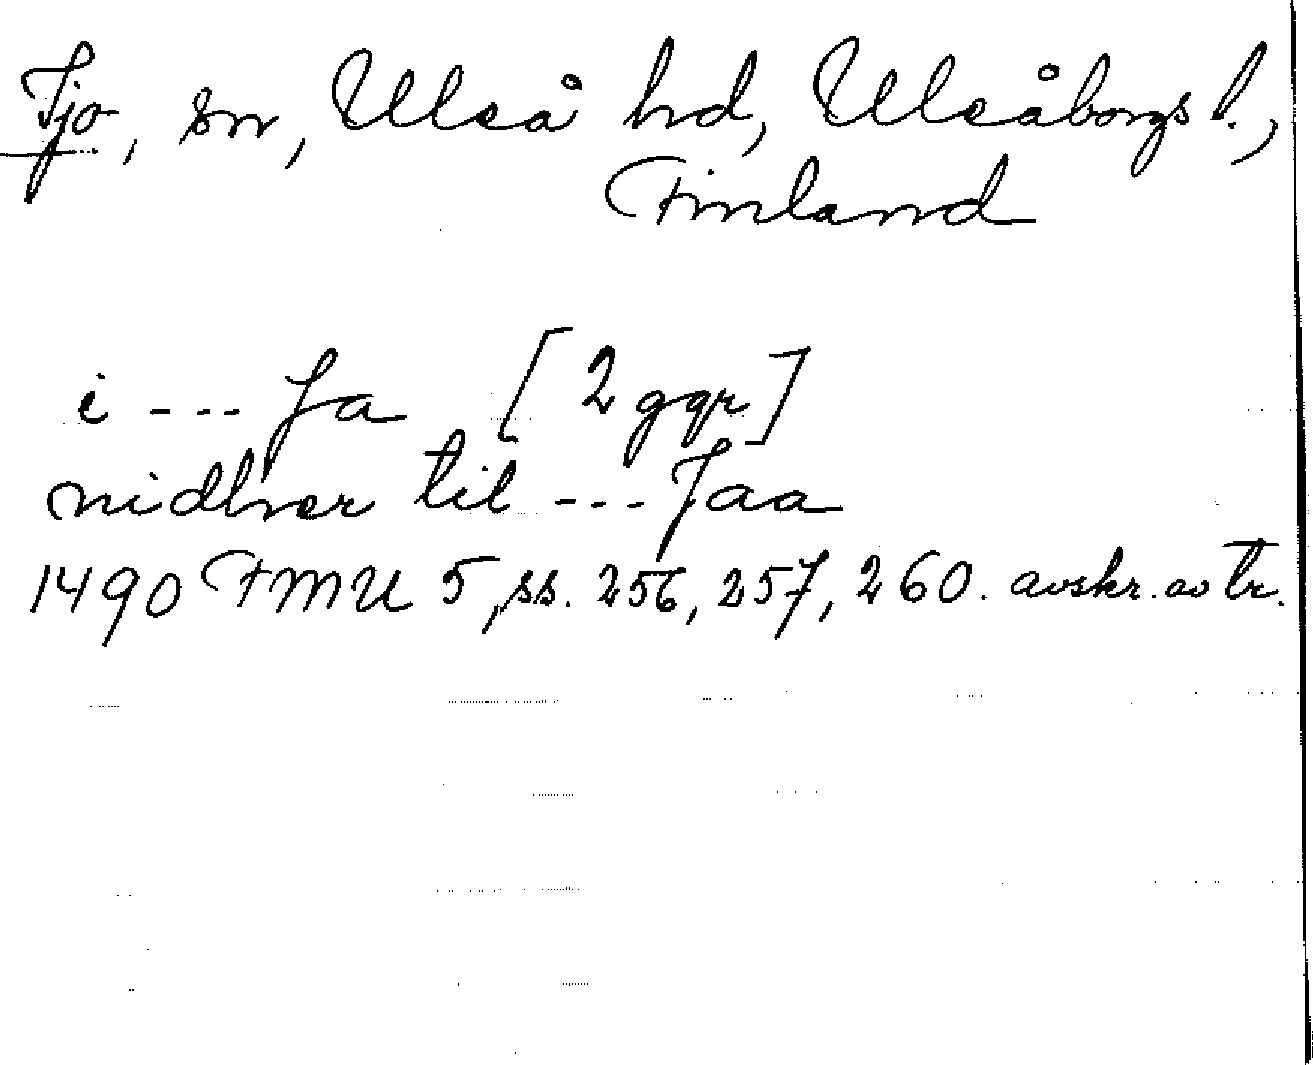 Ijo, sn, Uleå hd, Uleåborgs l.,
Finland
i --- Ja [2 ggr]
nidhver til --- Jaa
1490 FMU 5, ss. 256, 257, 260. avskr. av tr.